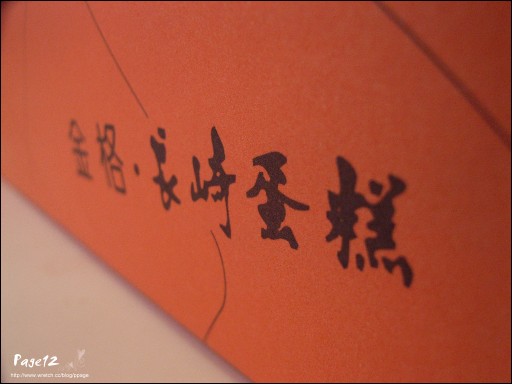 金格·長崎蛋糕
Page12
http://www.wretch.cc/blog/ppage